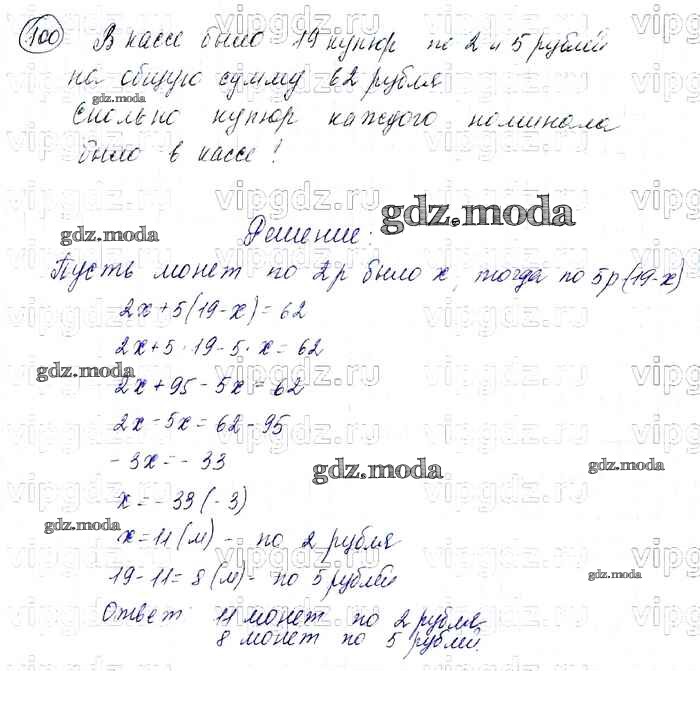 100 В кассе было 19 купюр по 2 и 5 рублей
на общую сумму 62 рубля
gdz.moda
Сколько купюр каждого номинала
было в кассе!
gdz.moda
gdz.moda
Решение:
Пусть монет по 2р было x, тогда по 5р (19-x)
2x+5(19-x)=62
2x+5·19-5·x=62
gdz.moda
2x+95-5x=62
2x-5x=62-95
-3x=-33
gdz.moda
gdz.moda
x=-33(-3)
gdz.moda
x=11(м) - по 2 рубля
19-11=8(м)- по 5 рублей
gdz.moda
Ответ: 11 монет по 2 рубля
8 монет по 5 рублей.
vipgdz.ru